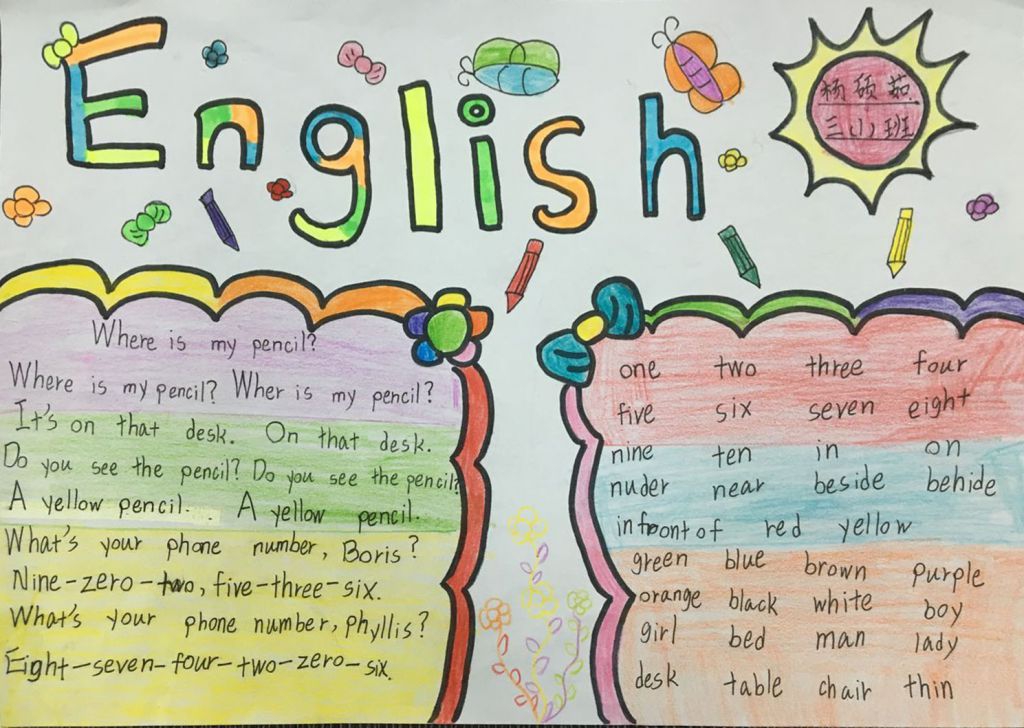 English
杨硕茹
三(1)班
Where is my pencil?
Where is my pencil? Wher is my pencil?
It's on that desk. On that desk.
Do you see the pencil? Do you see the pencil?
A yellow pencil. A yellow pencil.
What's your phone number, Boris?
Nine-zero-two, five-three-six.
What's your phone number, phyllis?
Eight-seven-four-two-zero-six.
one two three four
five six seven eight
nine ten in on
nuder near beside behide
infront of red yellow
green blue brown purple
orange black white boy
girl bed man lady
desk table chair thin